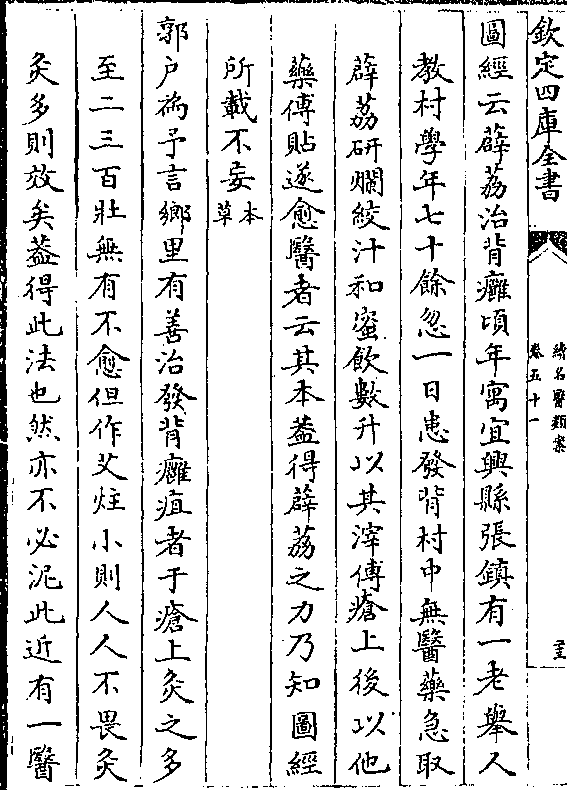 欽定四庫全書
續名醫類案
卷五十一
圖經云薜荔治背癰頃年寓宜興縣張鎮有一老舉人
教村學年七十餘忽一日患發背村中無醫藥急取
薜荔研爛絞汁和蜜飲數升以其滓傅瘡上後以他
藥傅貼遂愈醫者云其本葢得薜荔之力乃知圖經
所載不妄本草
郭户為予言鄉里有善治發背癰疽者于瘡上灸之多
至二三百壯無有不愈但作艾炷小則人人不畏灸
灸多則效矣葢得此法也然亦不必泥此近有一醫